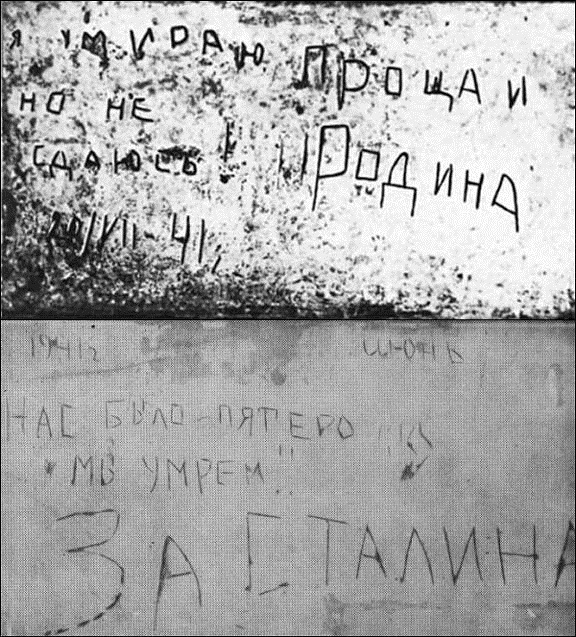 Я УМИРАЮ
НО НЕ
СДАЮСЬ!
20/VII-41,
ПРОЩАИ
РОДИНА
1941г ИЮНЬ
НАС БЫЛО ПЯТЕРО
МЫ УМРЕМ
ЗА СТАЛИНА